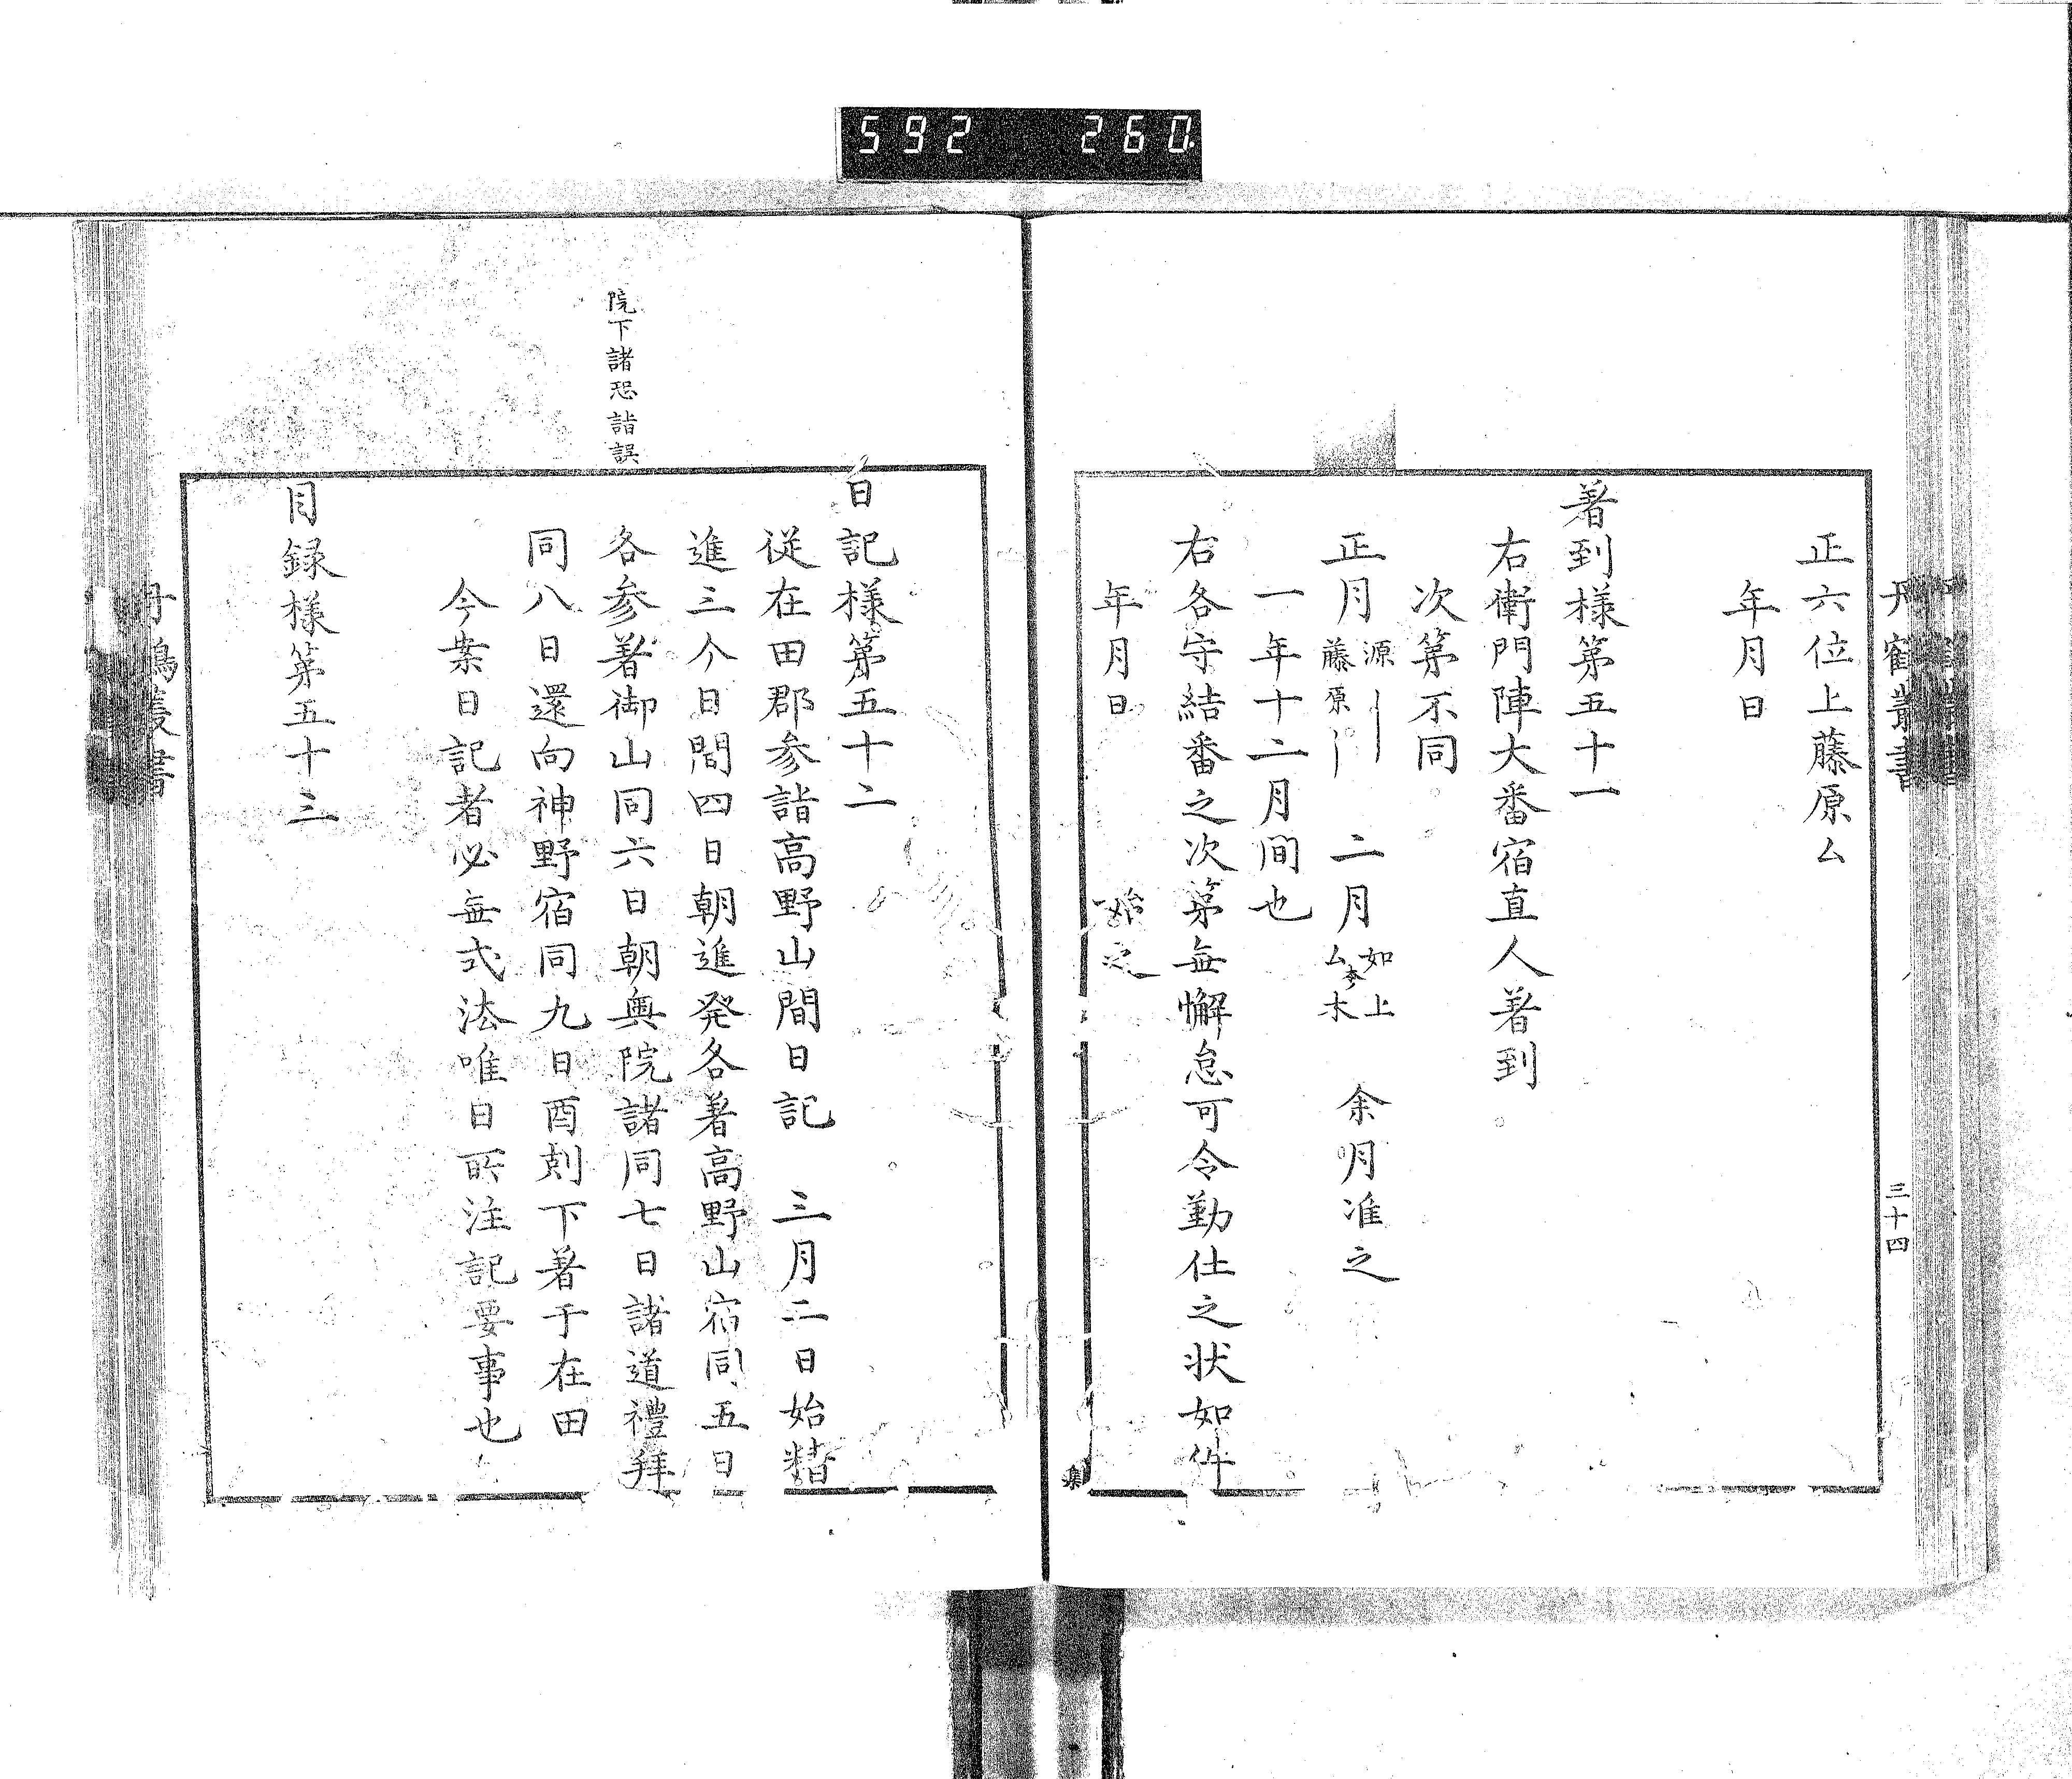 592 260
丹鶴叢書
三十四
正六位上藤原ム
年月日
着到様第五十一
右衛門陣大番宿直人着到
次第不同
正月 源 藤原 二月 如上 ム木 余月准之
一年十二月間也
右各守結番之次第無懈怠可令勤仕之状如件
年月日 始之
集
院下諸恐詣誤
日記様第五十二
従在田郡参詣高野山間日記 三月二日始精
進三个日間四日朝進発各着高野山宿同五日
各参着御山同六日朝奥院諸同七日諸道禮拜
同八日還向神野宿同九日酉剋下着于在田
今案日記者必無式法唯日所注記要事也
目録様第五十三
丹鶴叢書